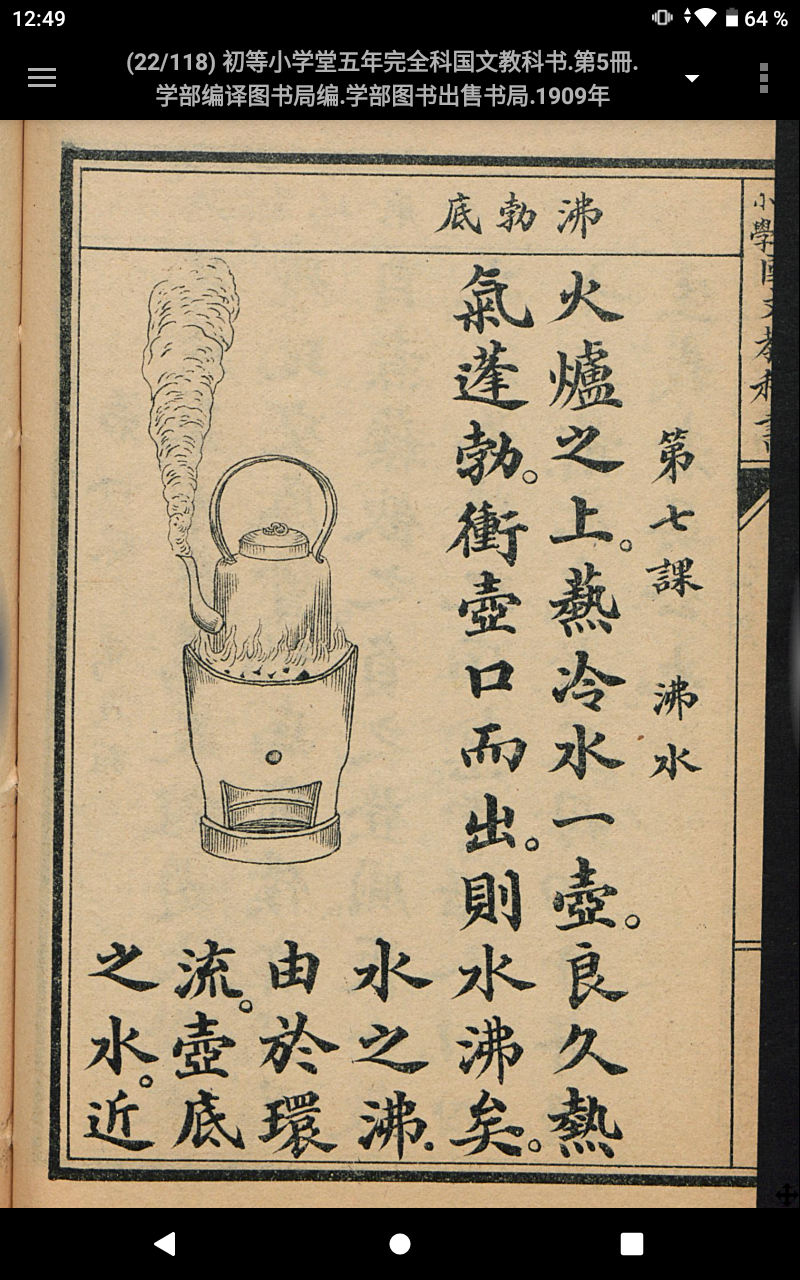 12:49
64 %
(22/118) 初等小学堂五年完全科国文教科书.第5冊.
学部编译图书局编.学部图书出售书局.1909年
小學國文教科書
沸勃底
第七課 沸水
火爐之上。爇冷水一壺。良久熱
氣蓬勃。衝壺口而出。則水沸矣。
水之沸.
由於環
流。壺底
之水。近